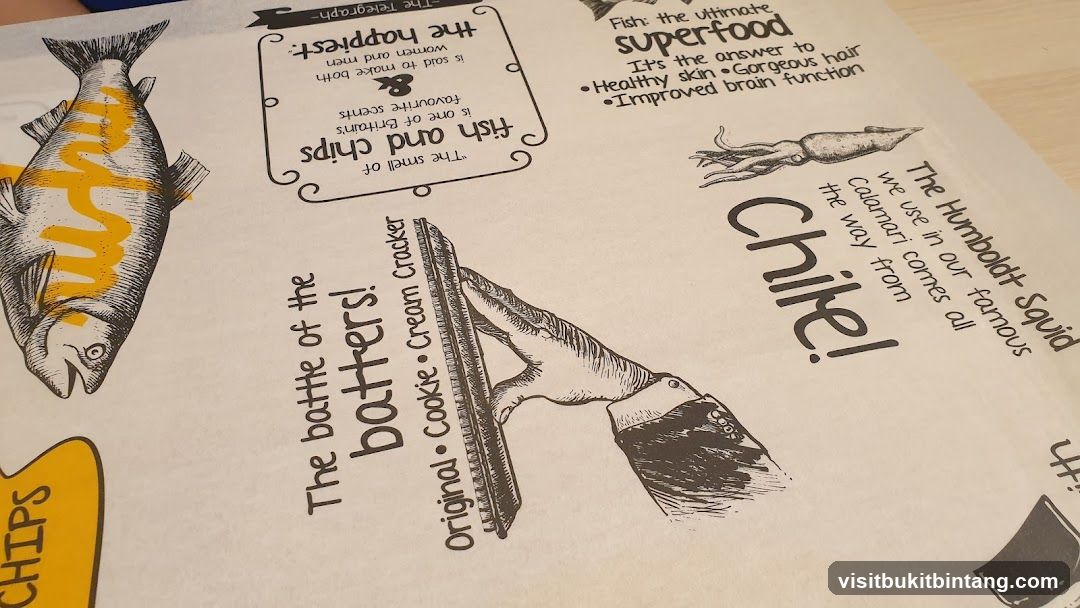 Fish: the ultimate
superfood
It's the answer to
•Healthy skin •Gorgeous hair
•Improved brain function
-The Telegraph-
"The smell of
fish and chips
is one of Britain's
favourite scents
&
is said to make both
women and men
the happiest.
The Humboldt Squid
we use in our famous
Calamari comes all
the way from
Chile!
The battle of the
batters!
Original • Cookie • Cream Cracker
CHIPS
visitbukitbintang.com